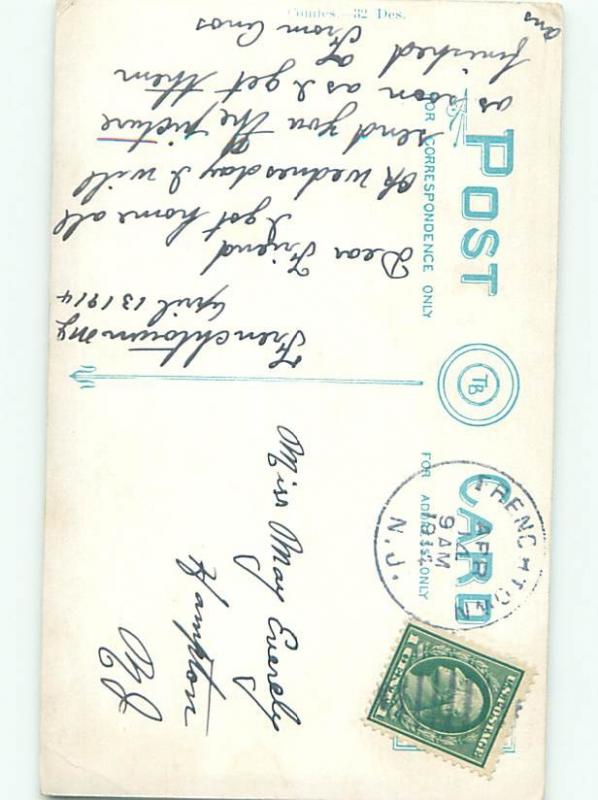 Comtes.—32 Des.
POST CARD
FOR CORRESPONDENCE ONLY
FOR ADDRESS ONLY
TB
Frenchtown NJ
April 13 1914
Dear Friend
I got home all
Ok wednesday I will
send you the picture
as soon as I get them
finished
From Amos
ans
FRENCHTOWN
APR 14
9 AM
1914
N.J.
U.S. POSTAGE
1 CENT 1
Miss May Everely
Hampton
NJ